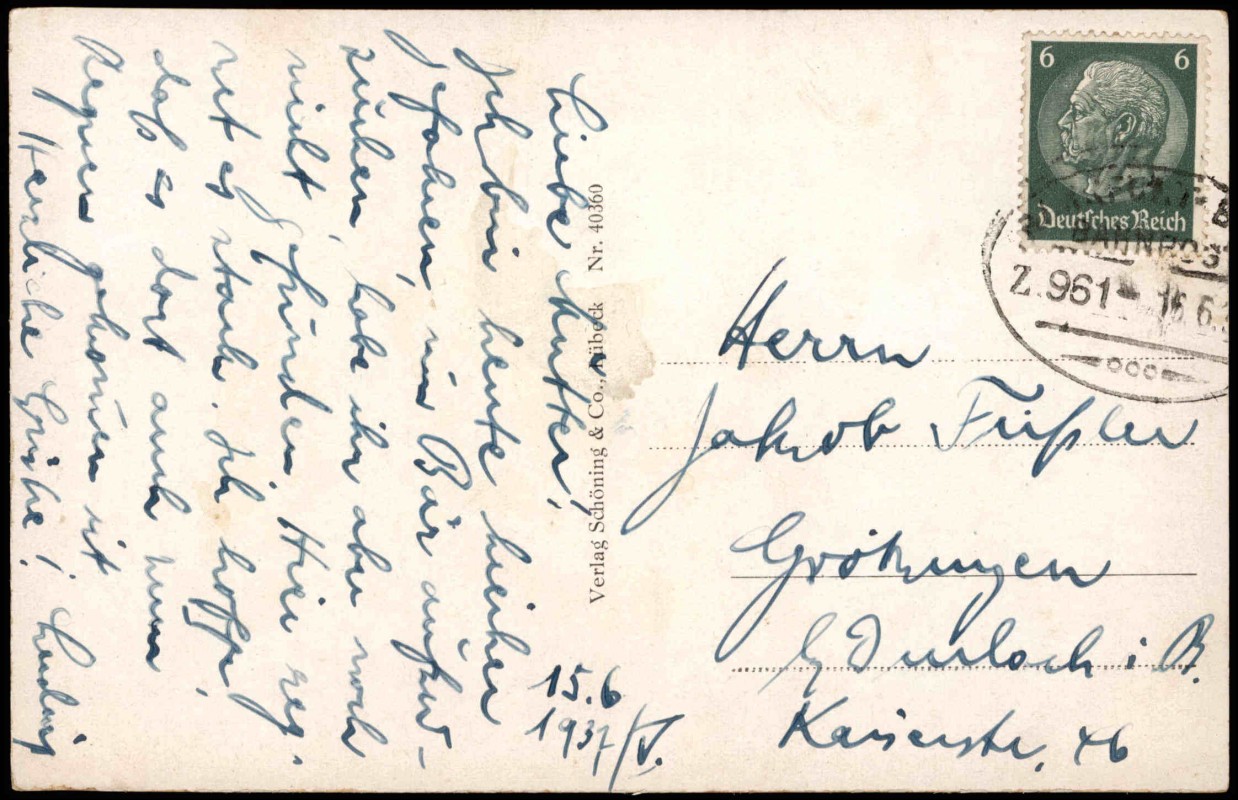 Liebe Mutter!
Ich bin heute hieher
gefahren, um Bär aufzu-
suchen, habe ihn aber noch
nicht gefunden. Hier reg-
net es stark. Ich hoffe,
daß es dort auch zum
Regnen gekommen ist
Herzliche Grüße! Ludwig
15.6
1937
Verlag Schöning & Co., Lübeck Nr. 40360
6 6
Deutsches Reich
BAHNPOST
Z.961 16.6.
Herrn
Jakob Füßler
Grötzingen
b/ Durlach i B.
Kaiserstr. 46